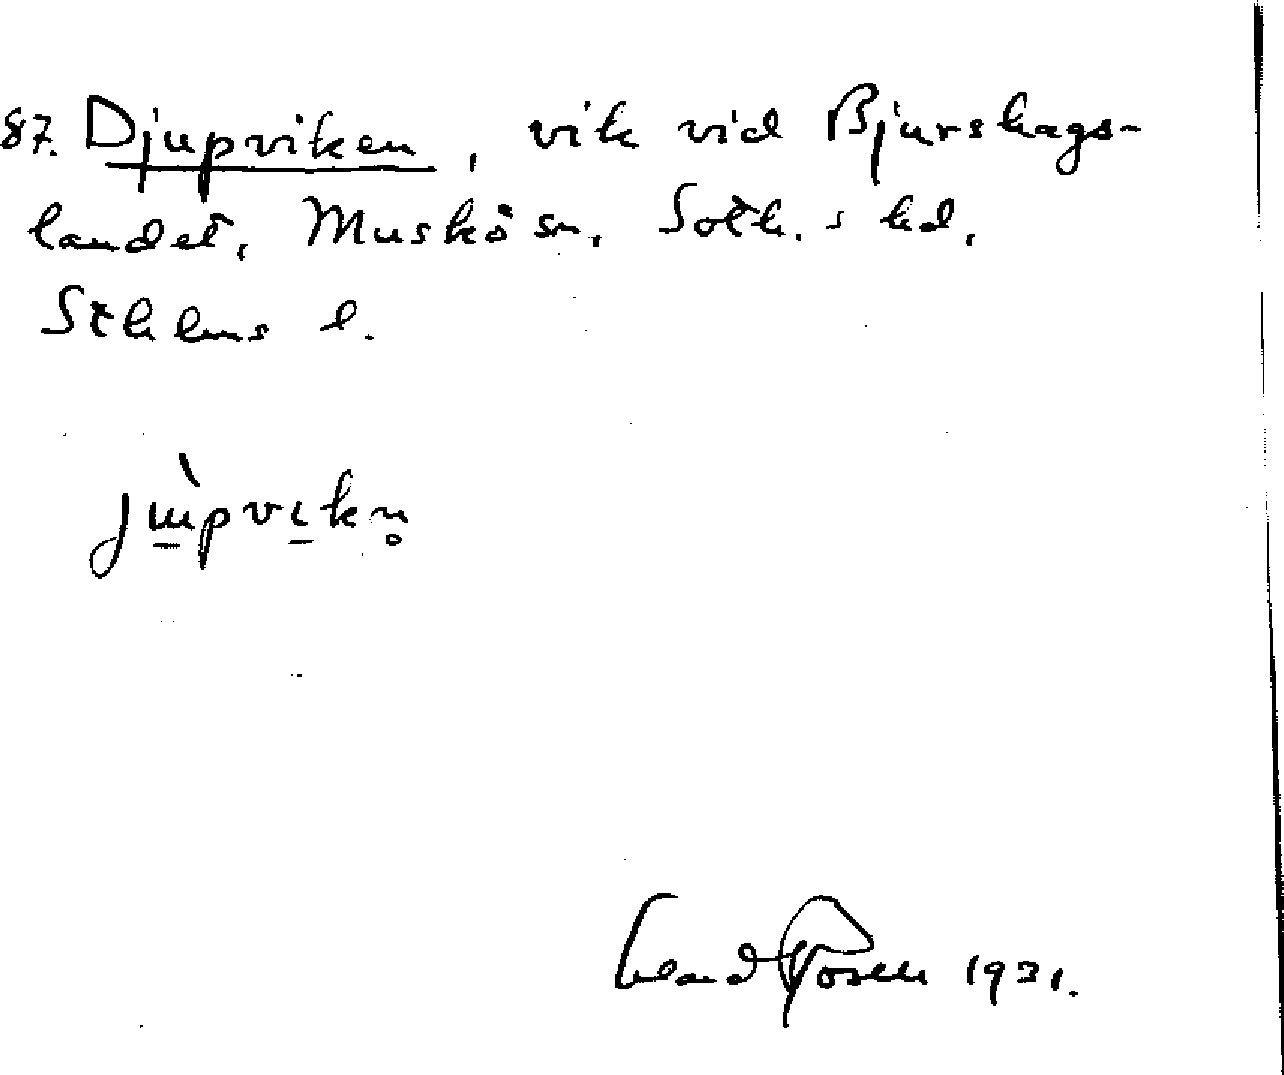 87. Djupviken, vik vid Bjurshags-
landet, Muskö sn, Soth. s hd,
Sthlms l.
jùpvikn̥
Rosell 1931.